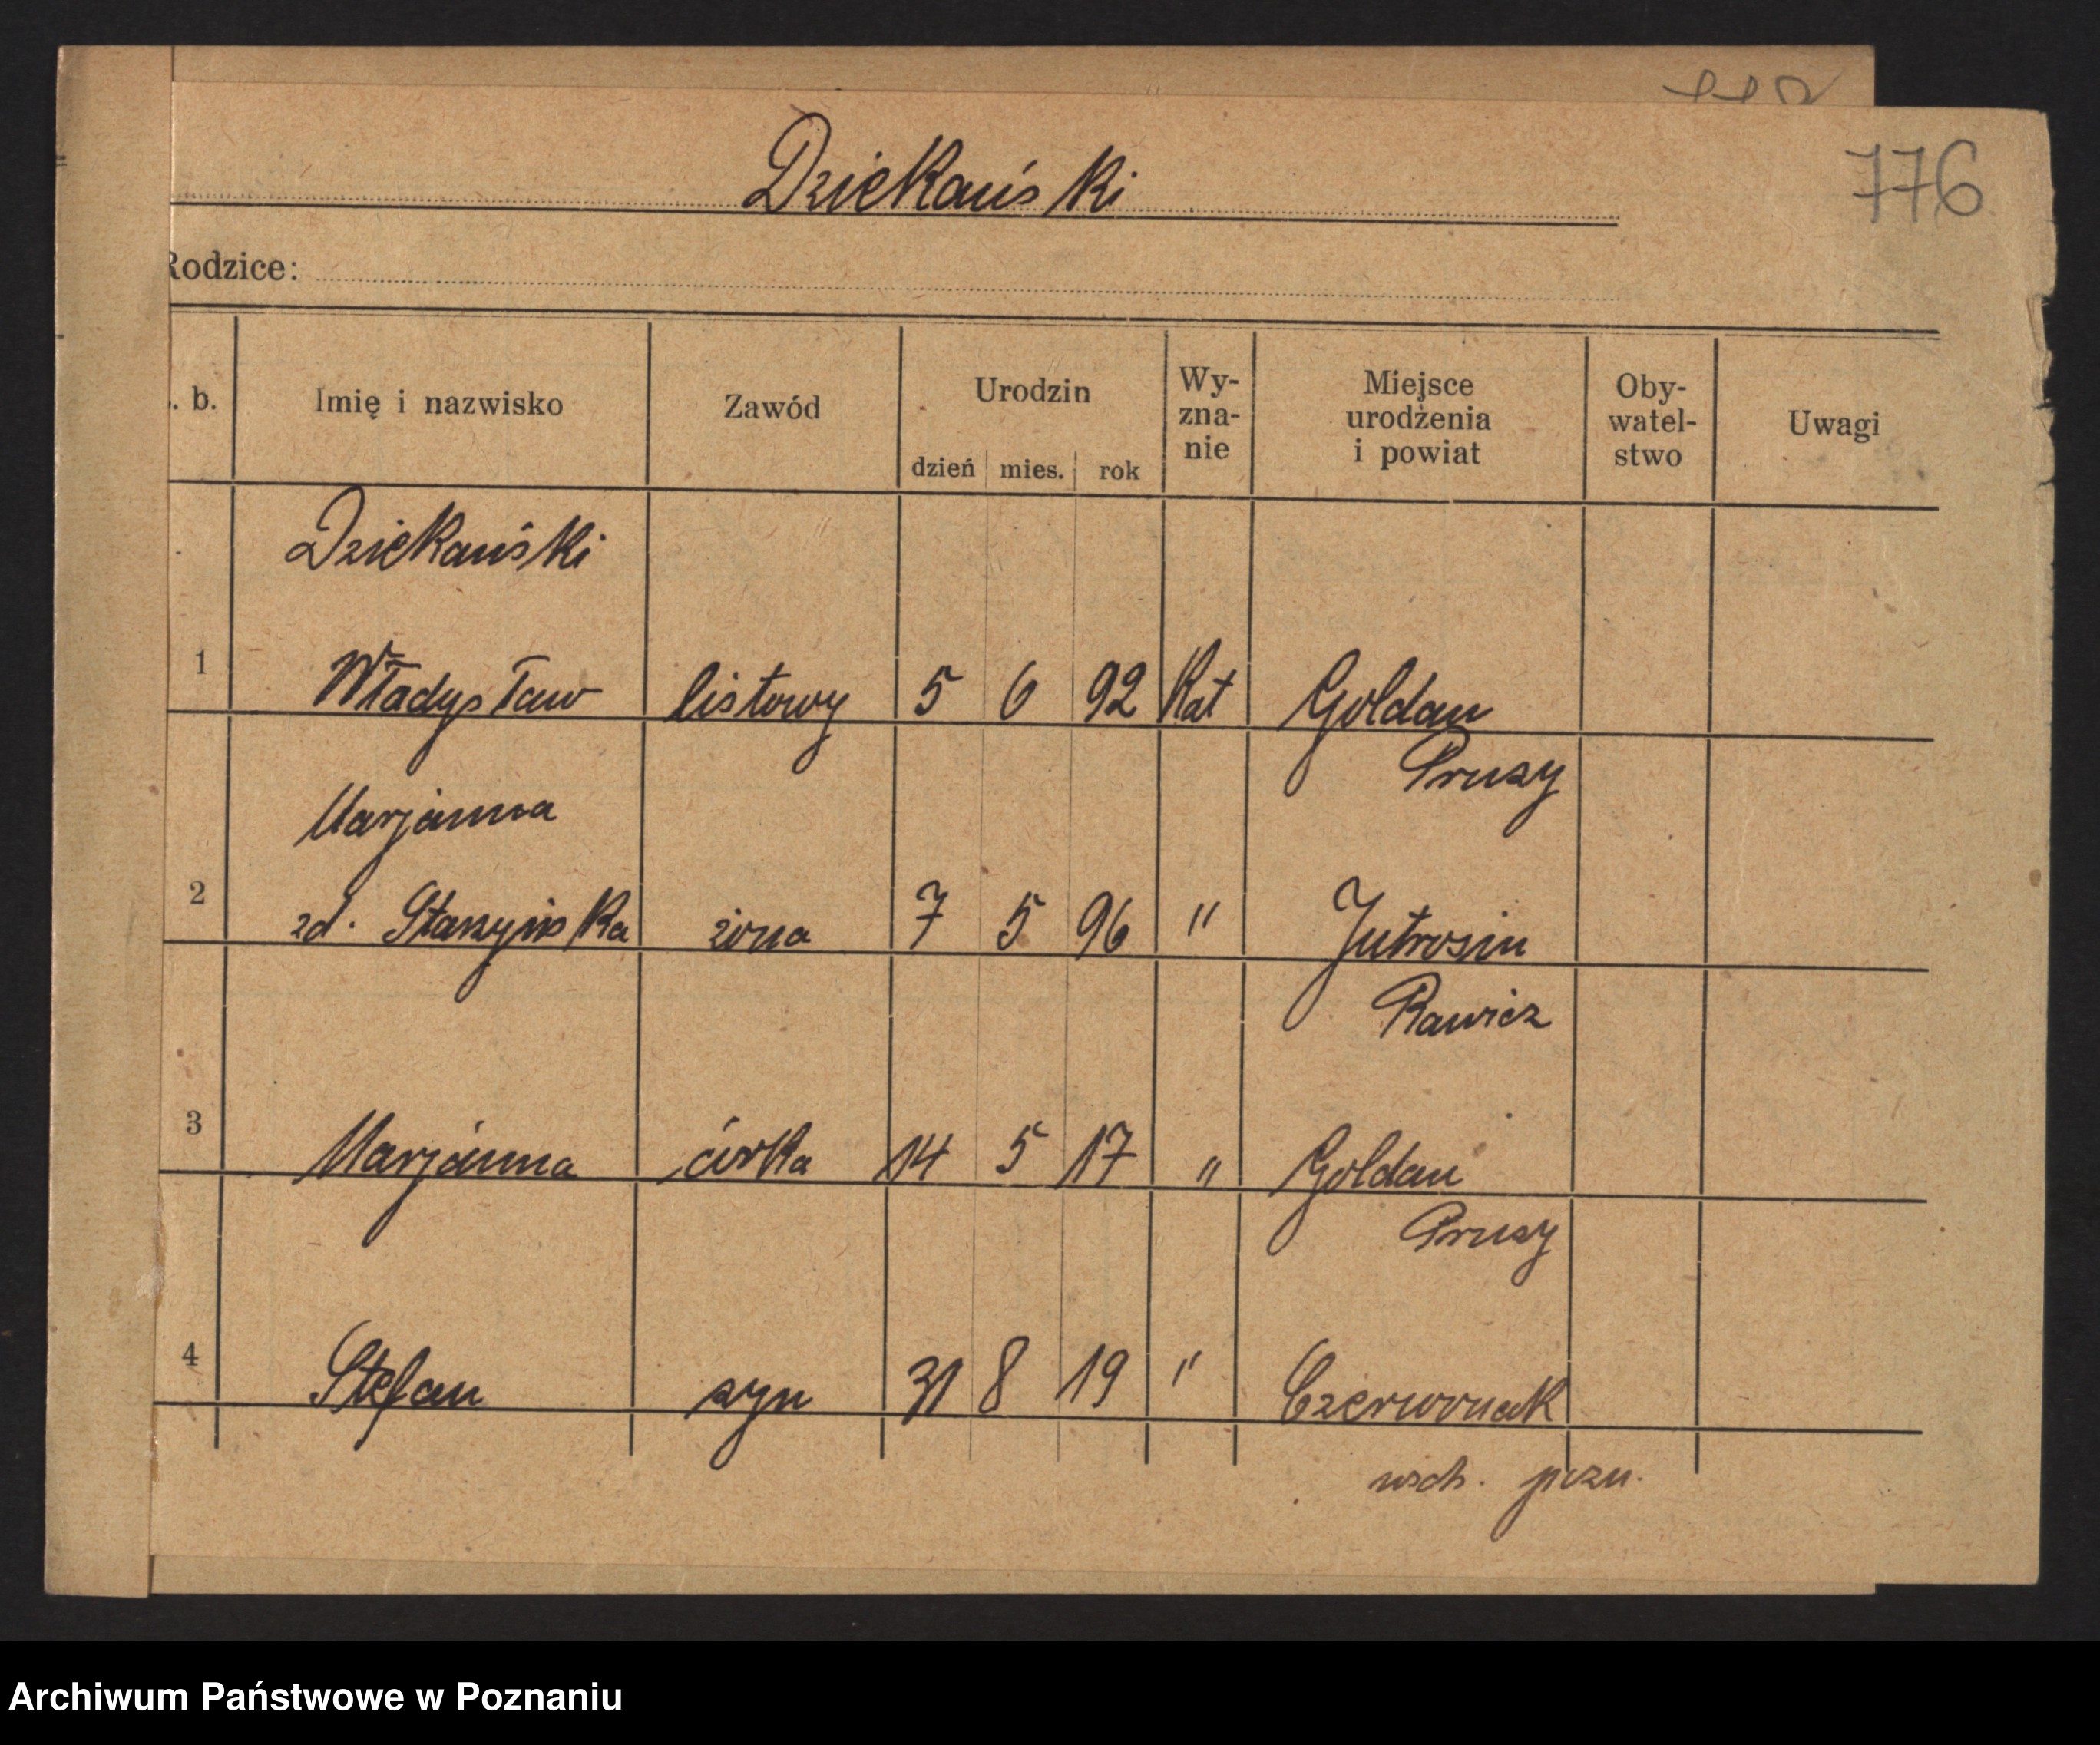 776
Dziekański
Rodzice:
. b. Imię i nazwisko Zawód Urodzin dzień mies. rok Wy-zna-nie Miejsce urodzenia i powiat Oby-watel-stwo Uwagi
Dziekański
1 Władysław listowy 5 6 92 Kat Goldau
Prusy
Marjanna
2 zd. Staszyńska żona 7 5 96 " Jutrosin
Rawicz
3 Marjanna córka 14 5 17 " Goldau
Prusy
4 Stefan syn 31 8 19 " Czerwonak
wsch. pozn.
Archiwum Państwowe w Poznaniu